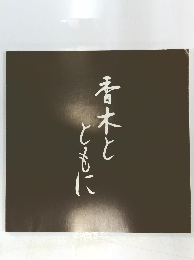 香木と
ともに